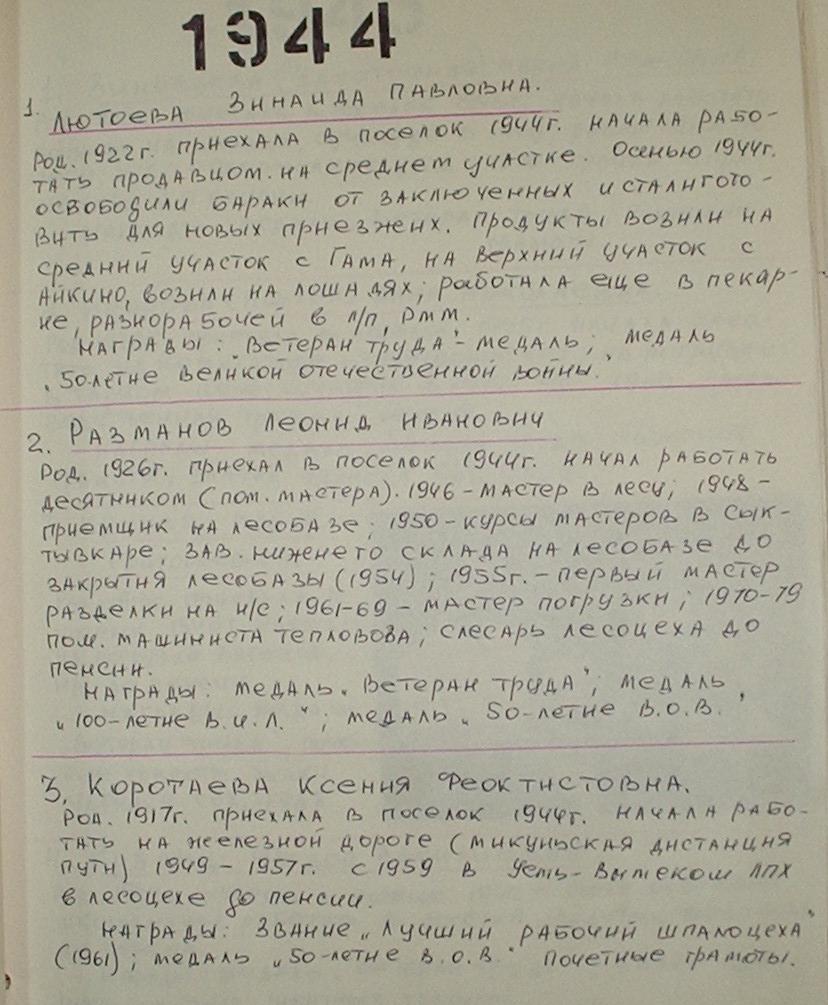 1944
1. Лютоева Зинаида Павловна.
Род. 1922г. приехала в поселок 1944г. начала рабо-
тать продавцом. на среднем участке. Осенью 1944г.
освободили бараки от заключенных и стали гото-
вить для новых приезжих. Продукты возили на
средний участок с Гама, на верхний участок с
Айкино, возили на лошадях; работала еще в пекар-
не, разнорабочей в л/п, РММ.
Награды: „Ветеран труда" - медаль; медаль
„50-летие Великой Отечественной войны."
2. Разманов Леонид Иванович
Род. 1926г. приехал в поселок 1944г. начал работать
десятником (пом. мастера). 1946 - мастер в лесу; 1948 -
приемщик на лесобазе; 1950 - курсы мастеров в Сык-
тывкаре; зав. нижнего склада на лесобазе до
закрытия лесобазы (1954); 1955г. - первый мастер
разделки на н/с; 1961-69 - мастер погрузки; 1970-79
пом. машиниста тепловоза; слесарь лесоцеха до
пенсии.
Награды: медаль „Ветеран труда"; медаль
„100-летие В.И.Л."; медаль „50-летие В.О.В."
3. Коротаева Ксения Феоктистовна.
Род. 1917г. приехала в поселок 1944г. начала рабо-
тать на железной дороге (Микуньская дистанция
пути) 1949 - 1957г. с 1959 в Усть-Вымском ЛПХ
в лесоцехе до пенсии.
Награды: Звание „Лучший рабочий шпалоцеха"
(1961); медаль „50-летие В.О.В." Почетные грамоты.